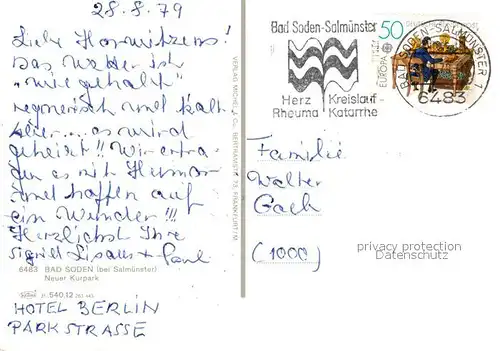 28.8.79
Liebe Horwitzens!
Das Wetter ist
"wie gehabt"
regnerisch und kalt,
aber.... es wird
geheizt!! Wir ertra-
gen es mit Humor
und hoffen auf
ein Wunder!!!
Herzlichst Ihre
Sigrid + Paul
6483 BAD SODEN (bei Salmünster)
Neuer Kurpark
540.12
HOTEL BERLIN
PARKSTRASSE
VERLAG MICHEL & CO. FRANKFURT/M.
Bad Soden-Salmünster
Herz Kreislauf-
Rheuma Katarrhe
50
DEUTSCHE BUNDESPOST
EUROPA
BAD SODEN-SALMÜNSTER 1
6483
Familie
Walter
(1000)
privacy protection
Datenschutz